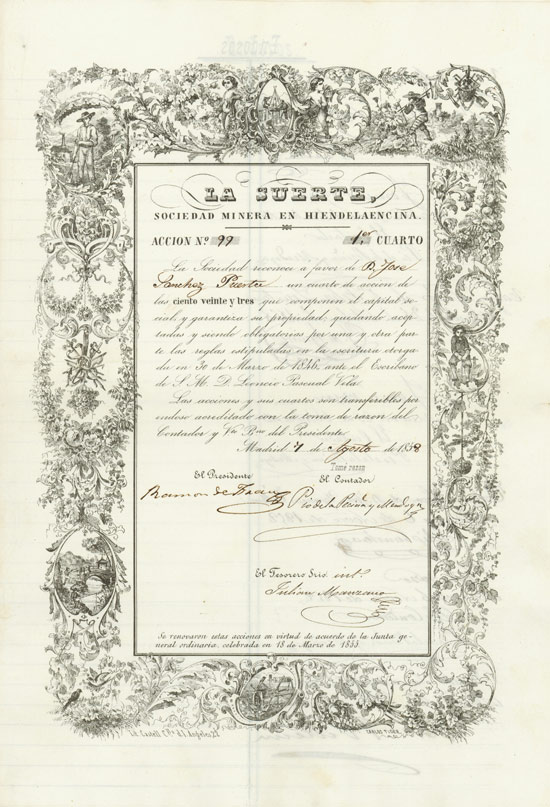 LA SUERTE,
SOCIEDAD MINERA EN HIENDELAENCINA.
ACCION Nº 99 1.er CUARTO
La Sociedad reconoce a favor de D. José
Sanchez Puerta un cuarto de acción de
las ciento veinte y tres que componen el capital so-
cial, y garantiza su propiedad, quedando acep-
tadas y siendo obligatorias por una y otra par-
te las reglas estipuladas en la escritura otorga-
da en 30 de Marzo de 1846, ante el Escribano
de S. M. D. Leoncio Pascual Vela.
Las acciones y sus cuartos son transferibles por
endoso acreditado con la toma de razon del
Contador y Vto Bno del Presidente.
Madrid 7 de Agosto de 1858
Tomé razon
El Presidente El Contador
Ramon de Pio de la Peña y Mendoza
El Tesorero Srio. intº.
Julian Manzano
Ruiz
Se renovaron estas acciones en virtud de acuerdo de la Junta ge-
neral ordinaria, celebrada en 18 de Marzo de 1855.
Lit. Castell C.Pta. d.l. Angeles, 21
CARLOS